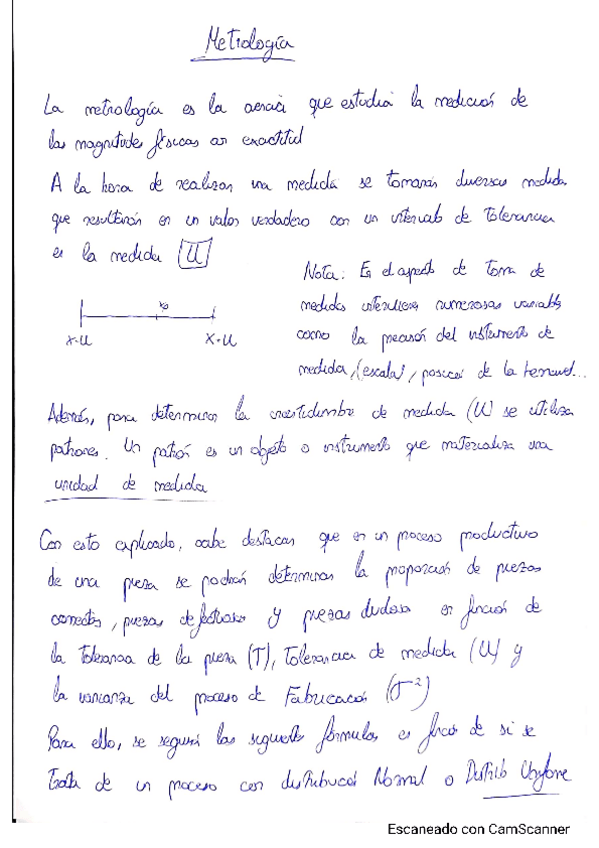 Metrología
La metrología es la ciencia que estudia la medición de
las magnitudes físicas con exactitud
A la hora de realizar una medida se tomarán diversas medidas
que resultarán en un valor verdadero con un intervalo de tolerancia
es la medida U
Nota: En el aspecto de toma de
medidas intervienen numerosas variables
como la precisión del instrumento de
medida, (escala), posición de la
x-U x+U
Además, para determinar la incertidumbre de medida (U) se utiliza
patrones. Un patrón es un objeto o instrumento que materializa una
unidad de medida
Con esto explicado, cabe destacar que en un proceso productivo
de una pieza se podrán determinar la proporción de piezas
correctas, piezas defectuosas y piezas dudosas en función de
la Tolerancia de la pieza (T), Tolerancia de medida (U) y
la varianza del proceso de Fabricación (σ²)
Para ello, se seguirá las siguientes fórmulas en función de si se
trata de un proceso con distribución Normal o Distrib Uniforme
Escaneado con CamScanner